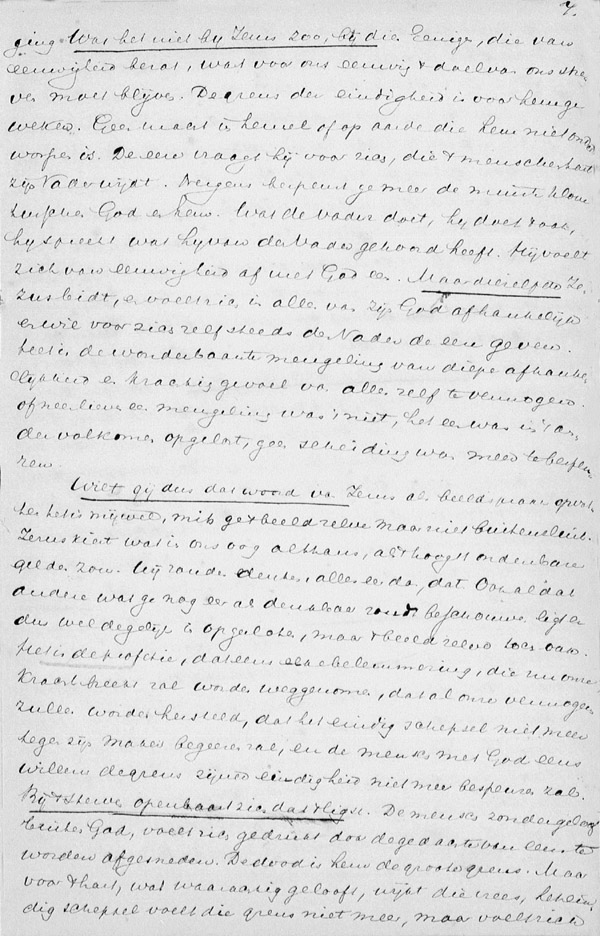 7.
ging. Was het niet bij Jezus zoo, bij die Eenige, die van
eeuwigheid herat, wat voor ons eeuwig & doel van ons stre
ven moet blijven. De grens der eindigheid is voor hem ge
weken. Geen macht in hemel of op aarde die hem niet onder
worpen is. De eer vraagt hij voor zich, die 't menschenhart
zijn Vader wijdt. Nergens bespeurt ge meer de minste kloof
tusschen God en hem. Wat de Vader doet, hij doet 't ook,
hij spreekt wat hij van den Vader gehoord heeft. Hij voelt
zich van eeuwigheid af met God een. Maar diezelfde Je-
zus bidt, en voelt zich in alles van zijn God afhankelijk
en wil voor zich zelf steeds de Vader de eer geven.
Het is de wonderbaarste mengeling van diepe afhanke
lijkheid en krachtig gevoel van alles zelf te vermogen.
of neen liever een mengeling was 't niet, het een was in 't an
der volkomen opgelost, geen scheiding was meer te bespeu
ren.
Wilt gij dus dat woord van Jezus als beeldspraak opvat
ten het is mij wel, mits ge 't beeld zelve maar niet buitensluit.
Jezus kiest wat in ons oog althans, als 't hoogst ondenkbare
gelden zou. Wij zouden denken, alles eerder, dat. Ook al dat
andere wat ge nog eer als denkbaar zoudt beschouwen ligt er
dus wel degelijk in opgesloten, maar 't beeld zelve toch ook.
Het is de profetie, dat eens elke belemmering, die nu onze
kracht breekt zal worden weggenomen, dat al onze vermogens
zullen worden hersteld, dat het eindig schepsel niet meer
tegen zijn Maker begeeren zal, en de mensch met God eens
willens de grens zijner eindigheid niet meer bespeuren zal.
Bij 't sterven openbaart zich dat 't ligst. De mensch zonder geloof
buiten God, voelt zich gedrukt door de gedachte van eens te
worden afgesneden. De dood is hem de groote grens. Maar
voor 't hart, wat waarachtig gelooft, wijkt die vrees, het ein
dig schepsel voelt die grens niet meer, maar voelt zich